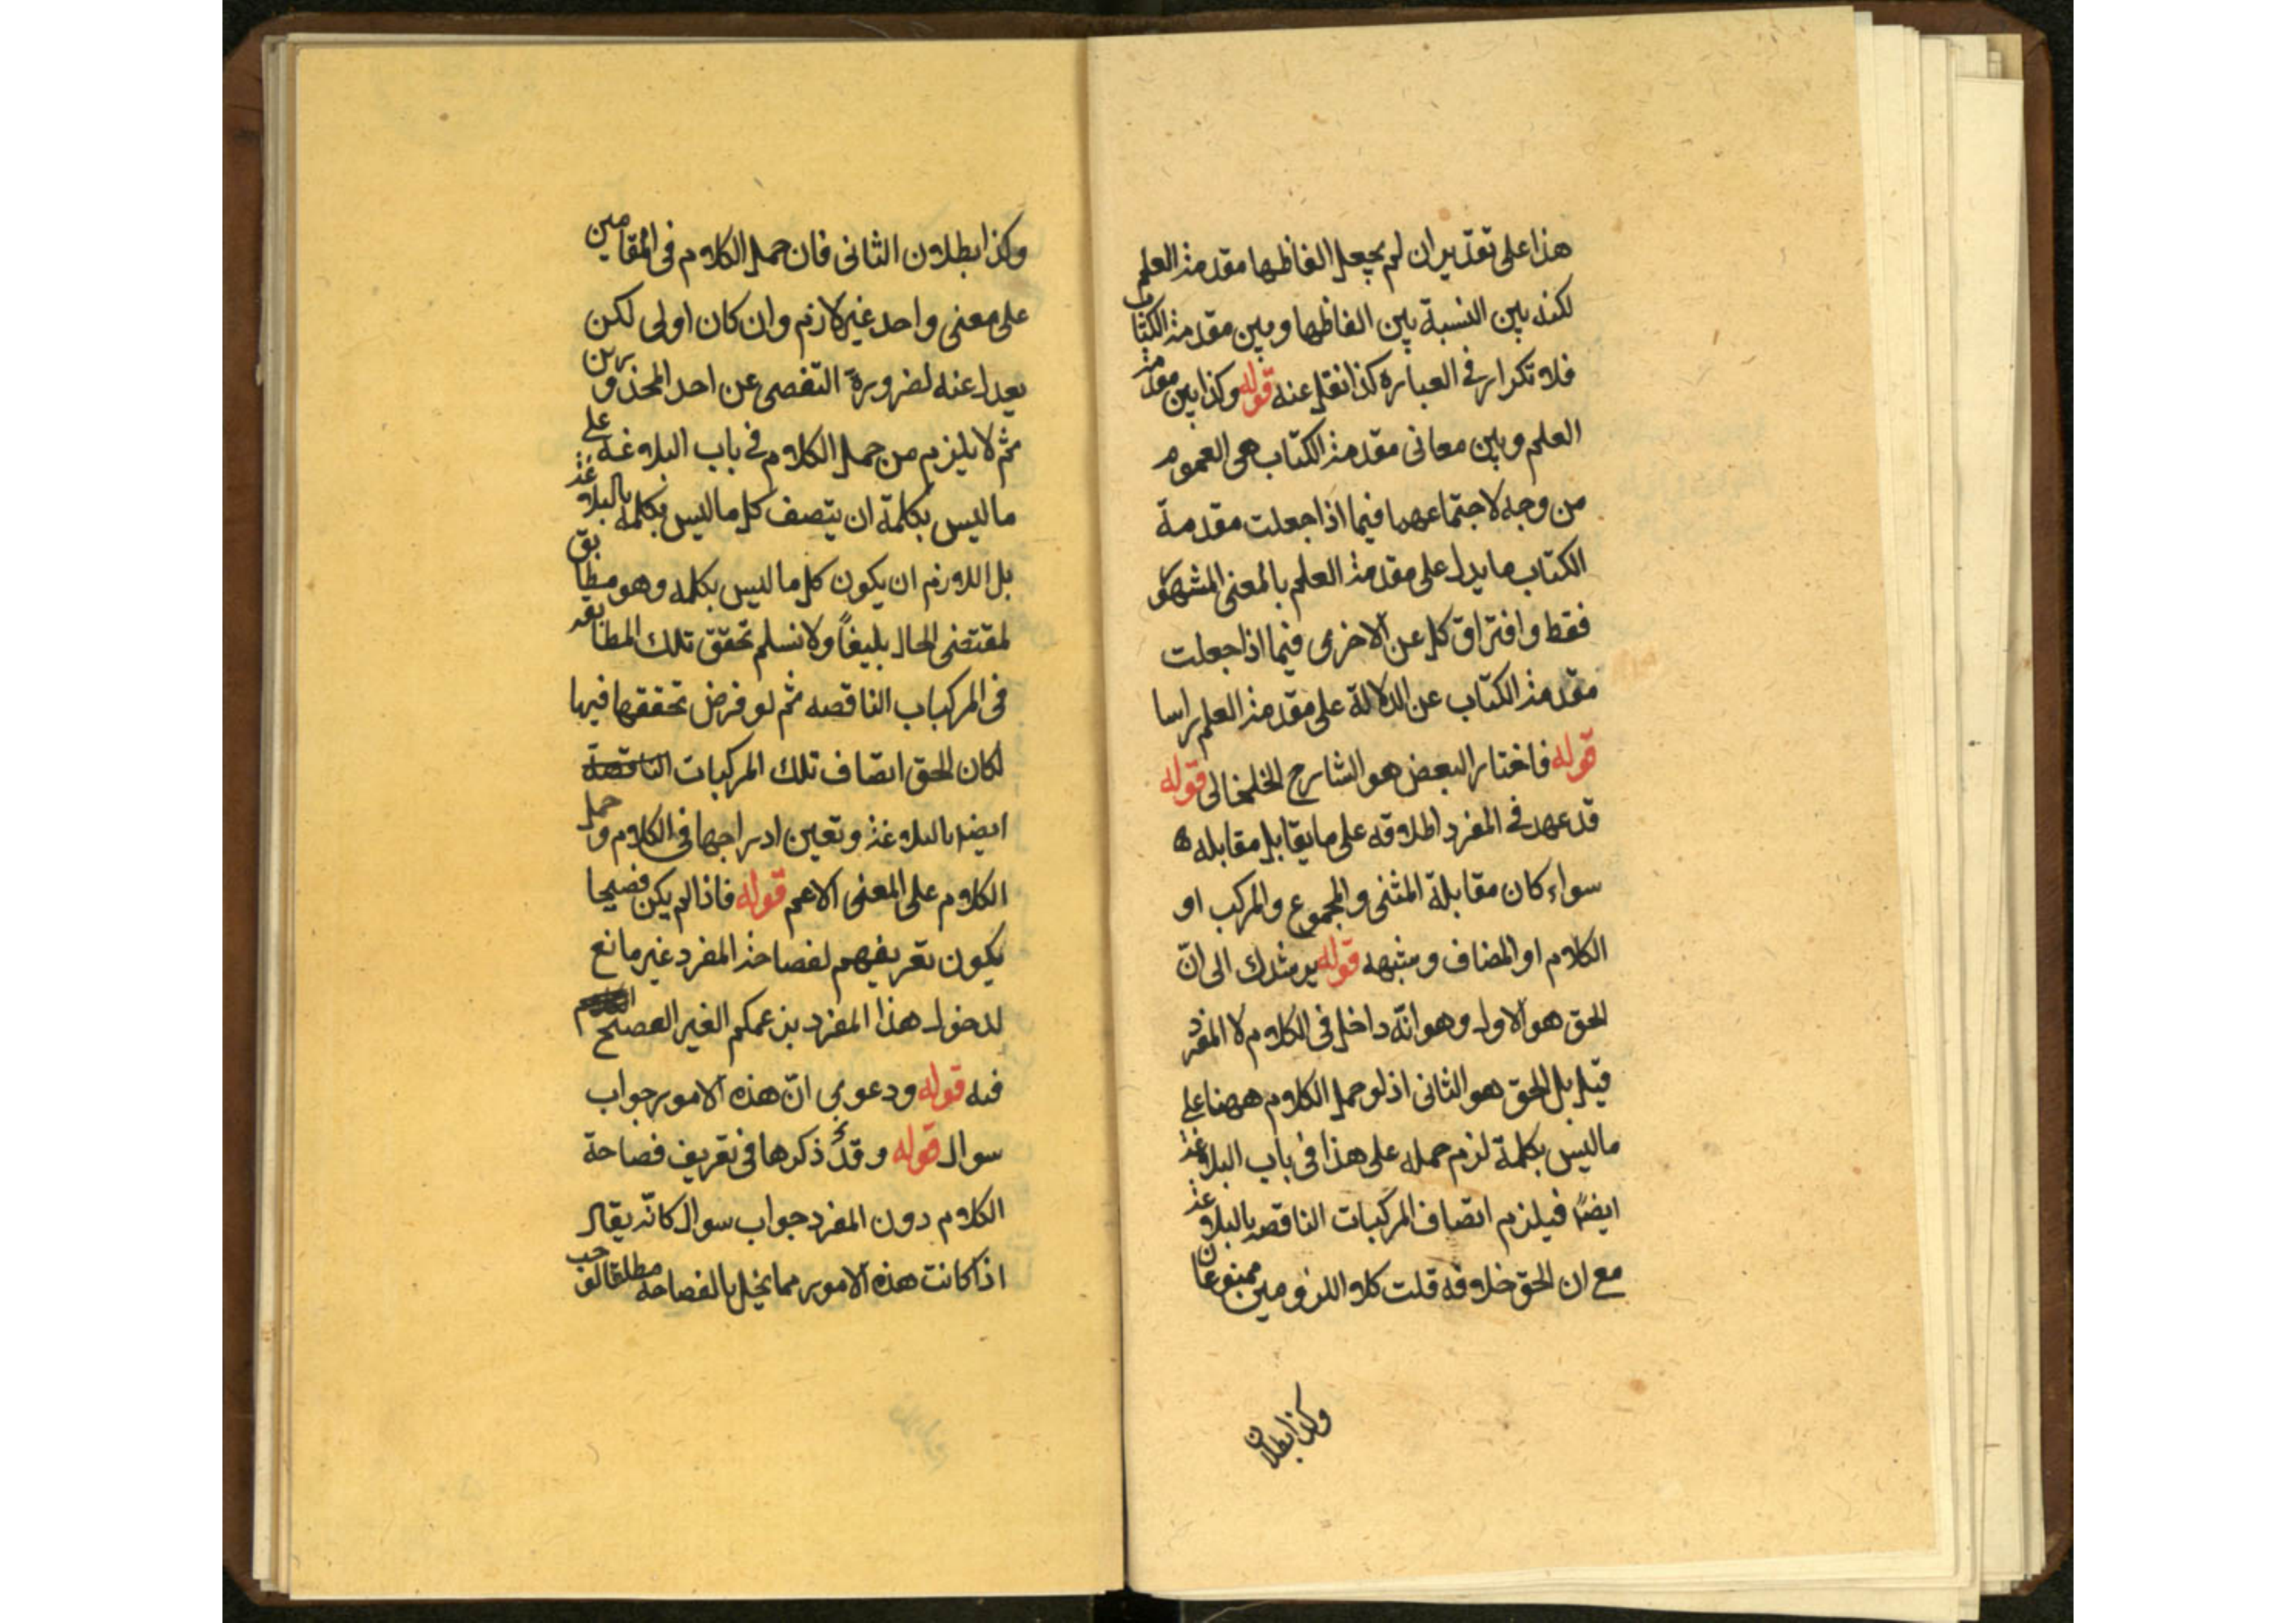 هذا على تقدير ان لم يجعل الفاظها مقدمة العلم
لكنه بين النسبة بين الفاظها وبين مقدمة الكتاب
فلا تكرار فى العبارة كذا نقل عنه قوله وكذا بين مقدمة
العلم وبين معانى مقدمة الكتاب هى العموم
من وجه لاجتماعهما فيما اذا جعلت مقدمة
الكتاب ما يدل على مقدمة العلم بالمعنى المشهور
فقط وافتراق كل عن الاخرى فيما اذا جعلت
مقدمة الكتاب عن الدلالة على مقدمة العلم راسا
قوله فاختار البعض هو الشارح الخلخالى قوله
قد عهد فى المفرد اطلاقه على ما يقابل مقابله
سواء كان مقابلة المثنى والمجموع والمركب او
الكلام او المضاف وشبهه قوله يرشدك الى انّ
الحق هو الاول وهو انّه داخل فى الكلام لا المفرد
قيل بل الحق هو الثانى اذ لو حمل الكلام ههنا على
ما ليس بكلمة لزم حمله على هذا فى باب البلاغة
ايضًا فيلزم اتصاف المركبات الناقصه بالبلاغة
مع ان الحق خلافه قلت كلا اللزومين ممنوعان
وكذا بطلان
وكذا بطلان الثانى فان حمل الكلام فى المقامين
على معنى واحد غير لازم وان كان اولى لكن
يعدل عنه لضرورة التفصى عن احد المحذورين
ثم لا يلزم من حمل الكلام فى باب البلاغة على
ما ليس بكلمة ان يتصف كل ما ليس بكلمه بالبلاغة
بل اللازم ان يكون كل ما ليس بكلمه وهو مطابق
لمقتضى الحال بليغًا ولا نسلم تحقق تلك المطابقه
فى المركباب الناقصه ثم لو فرض تحققها فيها
لكان الحق اتصاف تلك المركبات الناقصة
ايضا بالبلاغة وتعين ادراجها فى الكلام وحمل
الكلام على المعنى الاعم قوله فاذا لم يكن فصيحا
يكون تعريفهم لفصاحة المفرد غير مانع
لدخول هذا المفرد بزعمكم الغير الفصيح
فيه قوله ودعوى انّ هذه الامور جواب
سوال قوله وقد ذكرها فى تعريف فصاحة
الكلام دون المفرد جواب سوال كانّه يقال
اذا كانت هذه الامور مما يخل بالفصاحه مطلقا